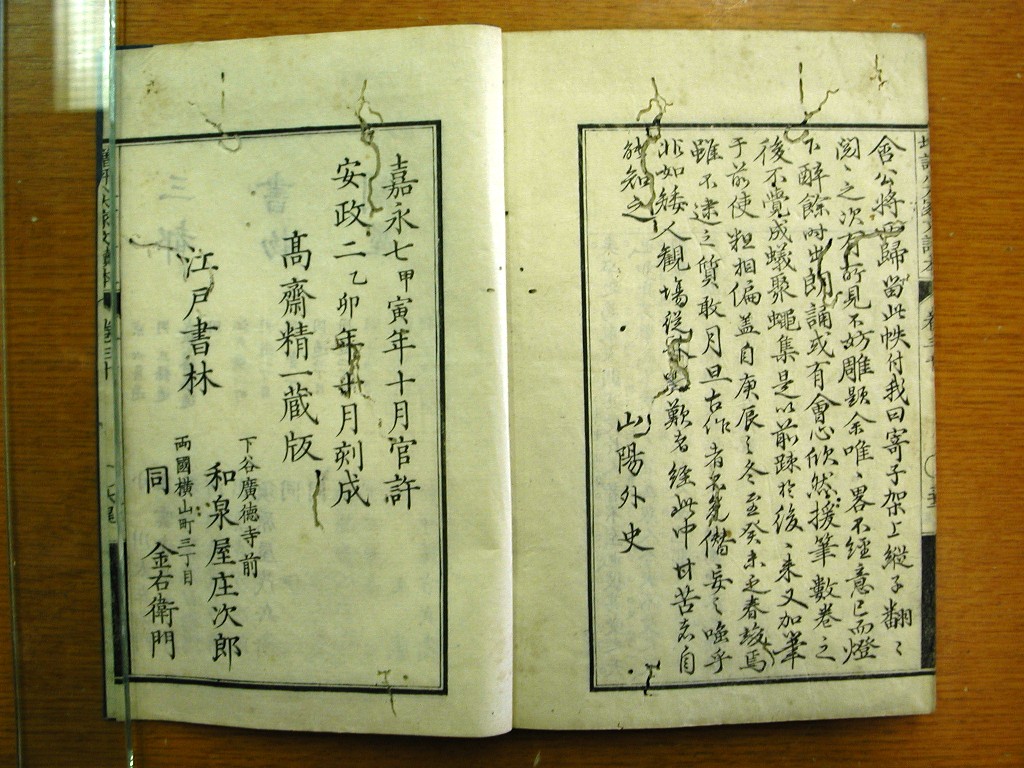 舎公將西歸留此帙付我曰寄子架上縱子翻〻
閲〻之次有所見不妨雕題余唯〻畧不經意已而燈
下醉餘時出朗誦或有會心欣然援筆數卷之
後不覺成蟻聚蠅集是以前踈於後〻来又加筆
于前使粗相偏蓋自庚辰之冬至癸未之春竣焉
雖不逮之質敢月旦古作者不免僭妄之嗤乎
非如矮人觀場從 歎者經此中甘苦者自
能知之
山陽外史
嘉永七甲寅年十月官許
安政二乙卯年 月刻成
髙齋精一蔵版
江戸書林
下谷廣徳寺前
和泉屋庄次郎
両國横山町三丁目
同 金右衛門